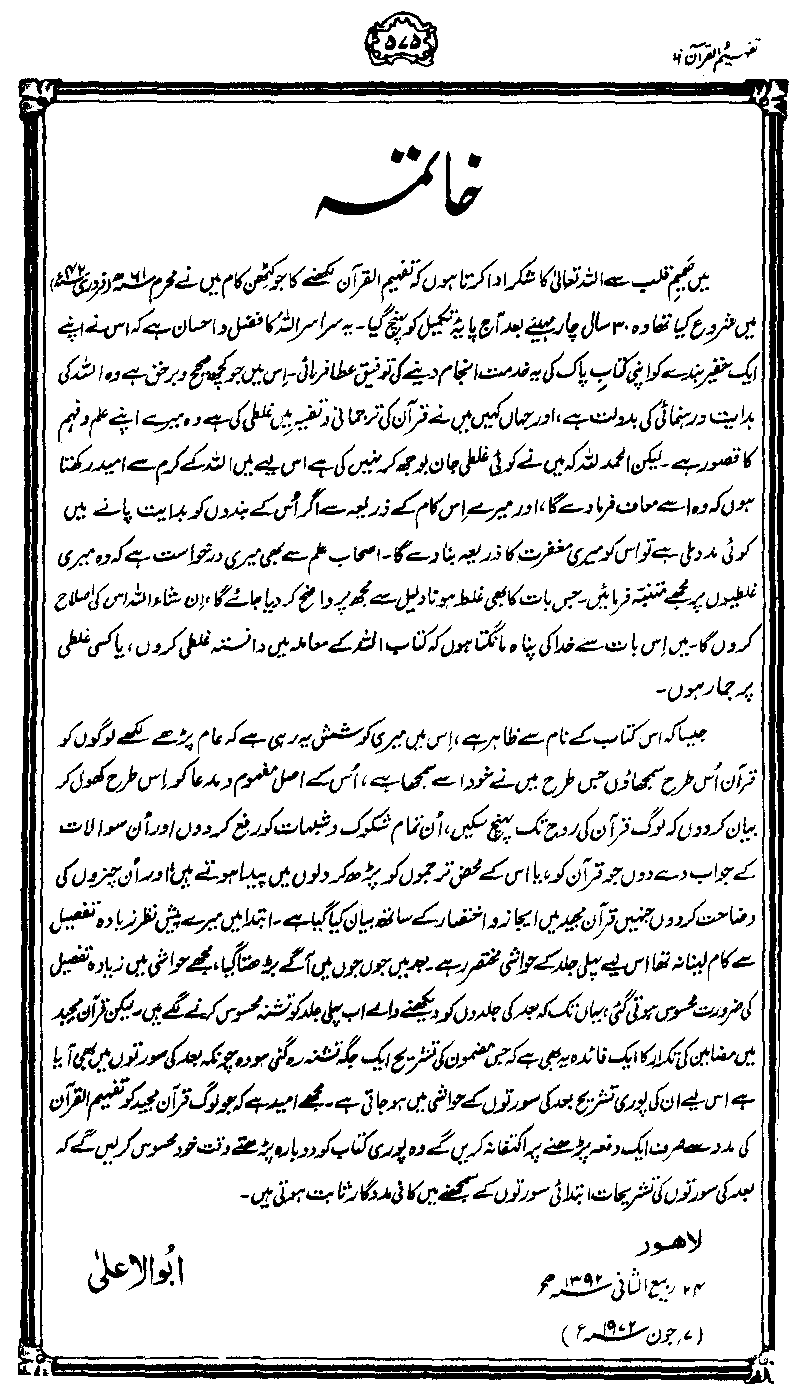 ۵۷۵
تفہیم القرآن ۶
خاتمہ
میں صمیمِ قلب سے اللہ تعالیٰ کا شکر ادا کرتا ہوں کہ تفہیم القرآن لکھنے کا جو کٹھن کام میں نے محرم ۶۱ھ (فروری ۴۲ء)
میں شروع کیا تھا وہ ۳۰ سال چار مہینے بعد آج پایۂ تکمیل کو پہنچ گیا۔ یہ سراسر اللہ کا فضل و احسان ہے کہ اس نے اپنے
ایک حقیر بندے کو اپنی کتابِ پاک کی یہ خدمت انجام دینے کی توفیق عطا فرمائی۔ اِس میں جو کچھ صحیح و برحق ہے وہ اللہ کی
ہدایت و رہنمائی کی بدولت ہے، اور جہاں کہیں میں نے قرآن کی ترجمانی و تفسیر میں غلطی کی ہے وہ میرے اپنے علم و فہم
کا قصور ہے۔ لیکن الحمد للہ کہ میں نے کوئی غلطی جان بوجھ کر نہیں کی ہے اس لیے میں اللہ کے کرم سے امید رکھتا
ہوں کہ وہ اسے معاف فرما دے گا، اور میرے اِس کام کے ذریعہ سے اگر اُس کے بندوں کو ہدایت پانے میں
کوئی مدد ملی ہے تو اس کو میری مغفرت کا ذریعہ بنا دے گا۔ اصحاب علم سے بھی میری درخواست ہے کہ وہ میری
غلطیوں پر مجھے متنبّہ فرمائیں۔ جس بات کا بھی غلط ہونا دلیل سے مجھ پر واضح کر دیا جائے گا، اِن شاء اللہ اس کی اصلاح
کروں گا۔ میں اِس بات سے خدا کی پناہ مانگتا ہوں کہ کتاب اللہ کے معاملہ میں دانستہ غلطی کروں، یا کسی غلطی
پر جما رہوں۔
جیسا کہ اس کتاب کے نام سے ظاہر ہے، اِس میں میری کوشش یہ رہی ہے کہ عام پڑھے لکھے لوگوں کو
قرآن اُس طرح سمجھاؤں جس طرح میں نے خود اسے سمجھا ہے، اُس کے اصل مفہوم و مدعا کو اِس طرح کھول کر
بیان کردوں کہ لوگ قرآن کی روح تک پہنچ سکیں، اُن تمام شکوک و شبہات کو رفع کر دوں اور اُن سوالات
کے جواب دے دوں جو قرآن کو، یا اس کے محض ترجموں کو پڑھ کر دلوں میں پیدا ہوتے ہیں، اور اُن چیزوں کی
وضاحت کردوں جنہیں قرآن مجید میں ایجاز و اختصار کے ساتھ بیان کیا گیا ہے۔ ابتدا میں میرے پیش نظر زیادہ تفصیل
سے کام لینا نہ تھا اس لیے پہلی جلد کے حواشی مختصر رہے۔ بعد میں جوں جوں میں آگے بڑھتا گیا، مجھے حواشی میں زیادہ تفصیل
کی ضرورت محسوس ہوتی گئی، یہاں تک کہ بعد کی جلدوں کو دیکھنے والے اب پہلی جلد کو تشنہ محسوس کرنے لگے ہیں۔ لیکن قرآن مجید
میں مضامین کی تکرار کا ایک فائدہ یہ بھی ہے کہ جس مضمون کی تشریح ایک جگہ تشنہ رہ گئی سو وہ چونکہ بعد کی سورتوں میں بھی آیا
ہے اس لیے ان کی پوری تشریح بعد کی سورتوں کے حواشی میں ہو جاتی ہے۔ مجھے امید ہے کہ جو لوگ قرآن مجید کو تفہیم القرآن
کی مدد سے صرف ایک دفعہ پڑھنے پر اکتفا نہ کریں گے وہ پوری کتاب کو دوبارہ پڑھتے وقت خود محسوس کریں گے کہ
بعد کی سورتوں کی تشریحات ابتدائی سورتوں کے سمجھنے میں کافی مددگار ثابت ہوتی ہیں۔
لاہور
۲۴ ربیع الثانی ۱۳۹۲ھ
(۷ جون ۱۹۷۲ء)
ابوالاعلیٰ